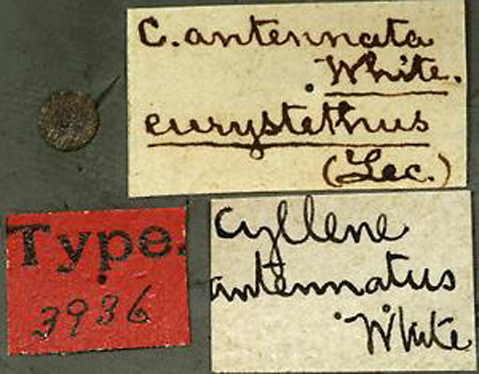 C. antennata
White.
eurystethus
(Lec.)
Type.
3936
Cyllene
antennatus
White